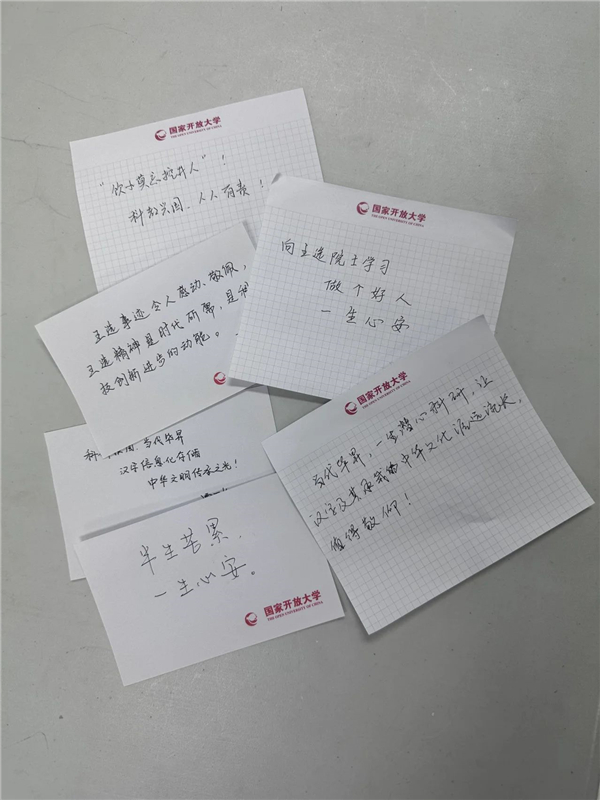 国家开放大学
THE OPEN UNIVERSITY OF CHINA
“饮水莫忘挖井人”!
科教兴国、人人有责!
国家开放大学
THE OPEN UNIVERSITY OF CHINA
向王选院士学习
做个好人
一生心安
王选事迹令人感动、敬佩,
王选精神是时代所需,是科
技创新进步的动能。
国家开放大学
THE OPEN UNIVERSITY OF CHINA
当代毕昇,一生潜心科研,让
汉字及其承载的中华文化源远流长,
值得敬仰!
当代毕昇
汉字信息化存储
中华文明传承之光!
半生苦累,
一生心安。
国家开放大学
THE OPEN UNIVERSITY OF CHINA